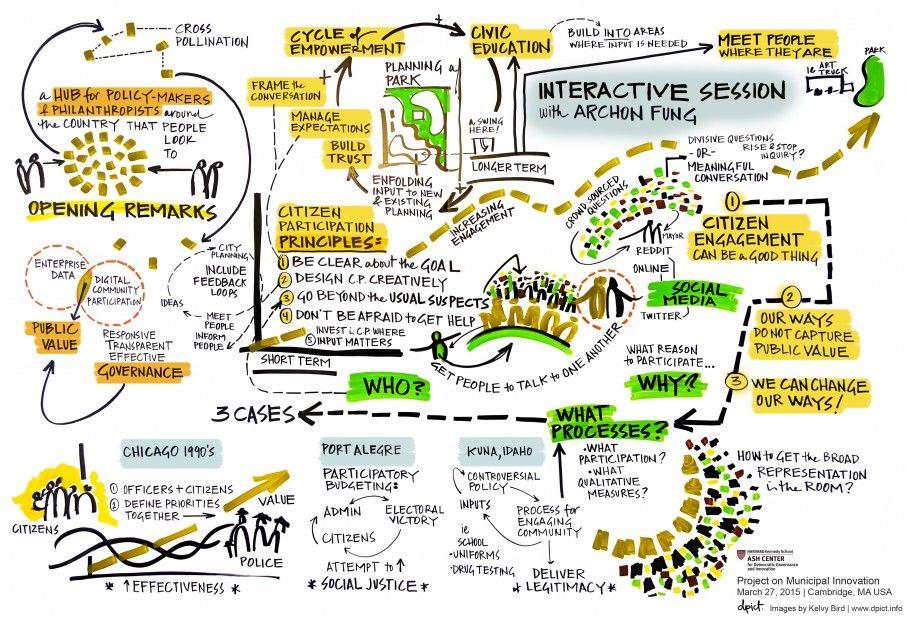 CROSS
POLLINATION
a HUB for POLICY-MAKERS
& PHILANTHROPISTS around
the COUNTRY THAT PEOPLE
LOOK
TO
OPENING REMARKS
ENTERPRISE
DATA
DIGITAL
COMMUNITY
PARTICIPATION
PUBLIC
VALUE
RESPONSIVE
TRANSPARENT
EFFECTIVE
GOVERNANCE
CITY
PLANNING
INCLUDE
FEEDBACK
LOOPS
IDEAS
MEET
PEOPLE
INFORM
PEOPLE
CYCLE of
EMPOWERMENT
+
CIVIC
EDUCATION
BUILD INTO AREAS
WHERE INPUT IS NEEDED
MEET PEOPLE
WHERE THEY ARE
ie ART
TRUCK
PARK
FRAME the
CONVERSATION
+
MANAGE
EXPECTATIONS
BUILD
TRUST
PLANNING a
PARK
a SWING
HERE!
LONGER TERM
ENFOLDING
INPUT to NEW
& EXISTING
PLANNING
INTERACTIVE SESSION
with ARCHON FUNG
INCREASING
ENGAGEMENT
CROWD SOURCED
QUESTIONS
DIVISIVE QUESTIONS
RISE & STOP
INQUIRY?
-OR-
MEANINGFUL
CONVERSATION
MAYOR
REDDIT
ONLINE
SOCIAL
MEDIA
TWITTER
CITIZEN
PARTICIPATION
PRINCIPLES:
1 BE CLEAR about the GOAL
2 DESIGN C.P. CREATIVELY
3 GO BEYOND the USUAL SUSPECTS
4 DON'T BE AFRAID to GET HELP
5 INVEST i.C.P. WHERE
INPUT MATTERS
SHORT TERM
GET PEOPLE to TALK to ONE ANOTHER
1
CITIZEN
ENGAGEMENT
CAN BE a GOOD THING
2
OUR WAYS
DO NOT CAPTURE
PUBLIC VALUE
3 WE CAN CHANGE
OUR WAYS!
WHAT REASON
to PARTICIPATE...
WHO?
WHY?
3 CASES
WHAT
PROCESSES?
• WHAT
PARTICIPATION?
• WHAT
QUALITATIVE
MEASURES?
HOW to GET the BROAD
REPRESENTATION
in the ROOM?
CHICAGO 1990'S
1 OFFICERS + CITIZENS
2 DEFINE PRIORITIES
TOGETHER
VALUE
CITIZENS
POLICE
* ↑ EFFECTIVENESS *
PORT ALEGRE
PARTICIPATORY
BUDGETING:
ADMIN
ELECTORAL
VICTORY
CITIZENS
ATTEMPT to ↑
* SOCIAL JUSTICE *
KUNA, IDAHO
CONTROVERSIAL
POLICY
INPUTS
PROCESS for
ENGAGING
COMMUNITY
ie
SCHOOL
• UNIFORMS
• DRUG TESTING
DELIVER
* LEGITIMACY *
HARVARD Kennedy School
ASH CENTER
for Democratic Governance
and Innovation
Project on Municipal Innovation
March 27, 2015 | Cambridge, MA USA
dpict. Images by Kelvy Bird | www.dpict.info